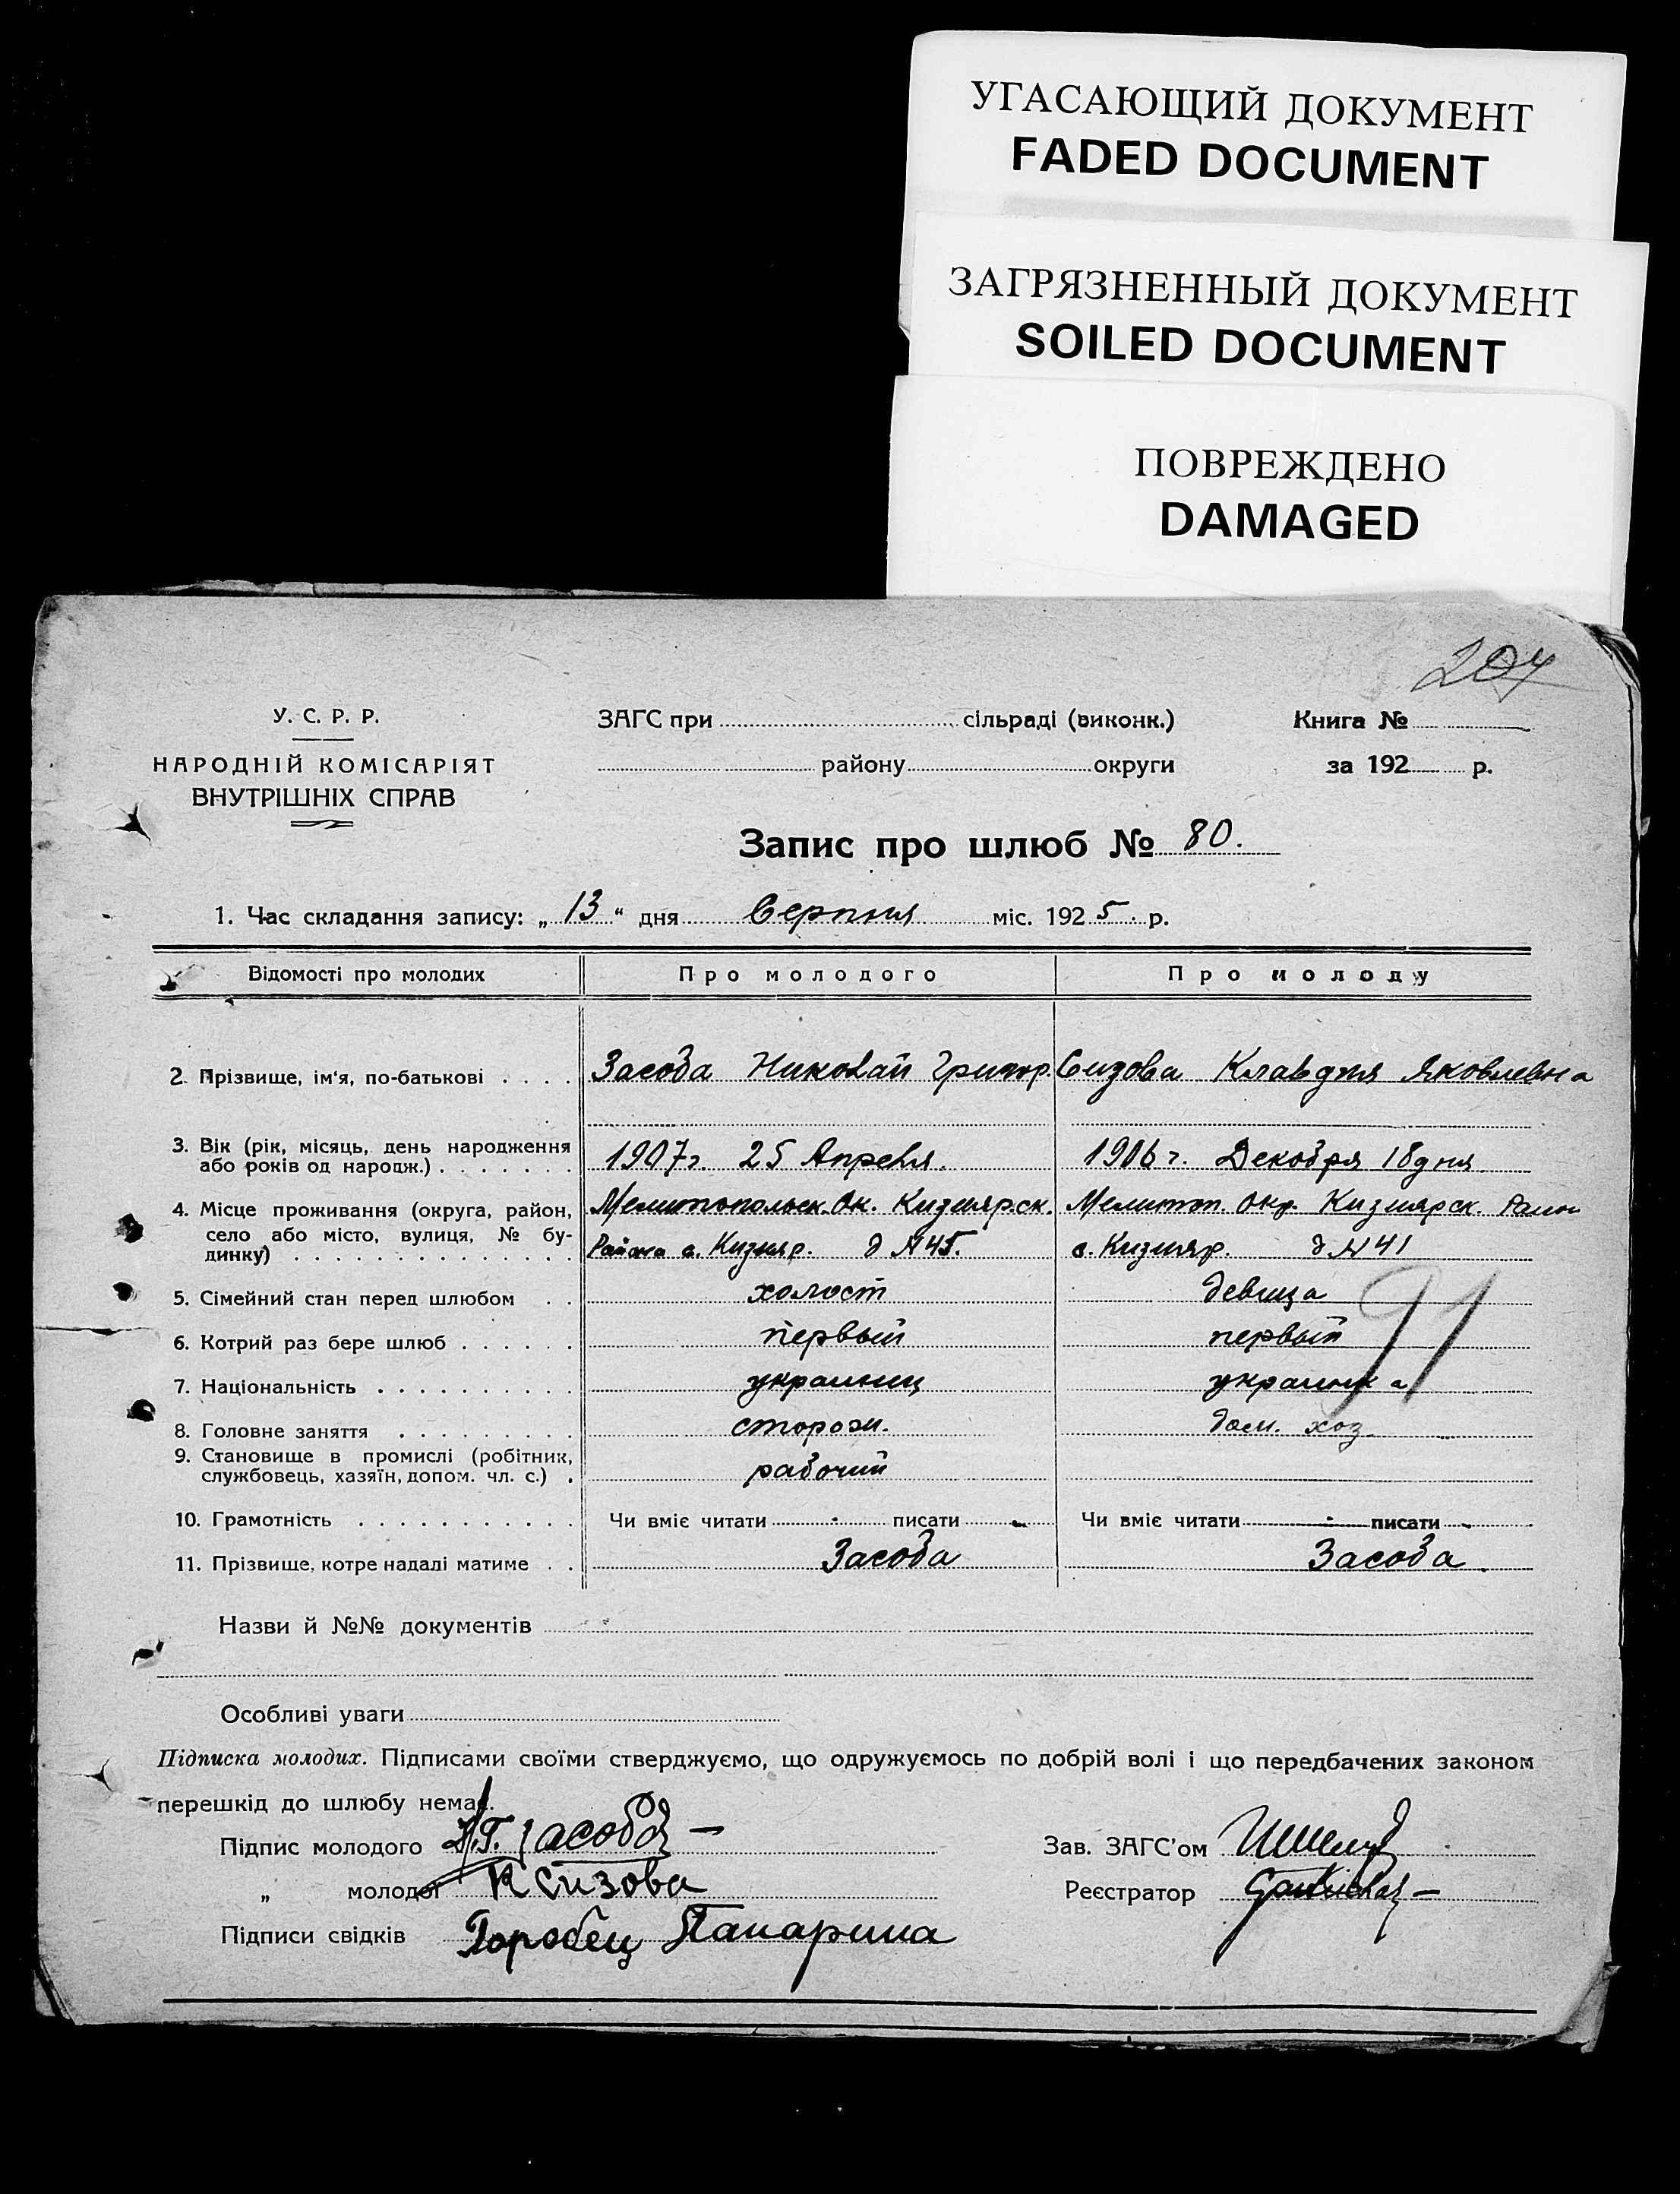 УГАСАЮЩИЙ ДОКУМЕНТ
FADED DOCUMENT
ЗАГРЯЗНЕННЫЙ ДОКУМЕНТ
SOILED DOCUMENT
ПОВРЕЖДЕНО
DAMAGED
207
У. С. Р. Р.
НАРОДНІЙ КОМІСАРІЯТ
ВНУТРІШНІХ СПРАВ
ЗАГС при сільраді (виконк.)
району округи
Книга №
за 192 р.
Запис про шлюб № 80.
1. Час складання запису: „ 13 “ дня Серпня міс. 1925. р.
Відомості про молодих Про молодого Про молоду
2. Прізвище, ім'я, по-батькові . . . . Засоба Николай Григор. Сизова Клавдия Яковлевна
3. Вік (рік, місяць, день народження
або років од народж.) . . . . . . . 1907г. 25 Апреля. 1906 г. Декабря 18 дня
4. Місце проживання (округа, район,
село або місто, вулиця, № бу-
динку) . . . . . . . . . . . . . .
Мелитопольск. Ок. Кизиярск. Мелитоп. Окр. Кизиярск. Район
Района с. Кизияр. д № 45. с. Кизияр. д № 41
5. Сімейний стан перед шлюбом . . холост девица
6. Котрий раз бере шлюб . . . . . . первый первый
7. Національність . . . . . . . . . . украинец украинка
91
8. Головне заняття . . . . . . . . . сторож. дом. хоз.
9. Становище в промислі (робітник,
службовець, хазяїн, допом. чл. с.) . рабочий
10. Грамотність . . . . . . . . . . . Чи вміє читати писати Чи вміє читати писати
11. Прізвище, котре надалі матиме . . Засоба Засоба
Назви й №№ документів
Особливі уваги
Підписка молодих. Підписами своїми стверджуємо, що одружуємось по добрій волі і що передбачених законом
перешкід до шлюбу немає.
Підпис молодого Н.Г. Засоба Зав. ЗАГС'ом
„ молодої К Сизова Реєстратор
Підписи свідків Горобец Панарина